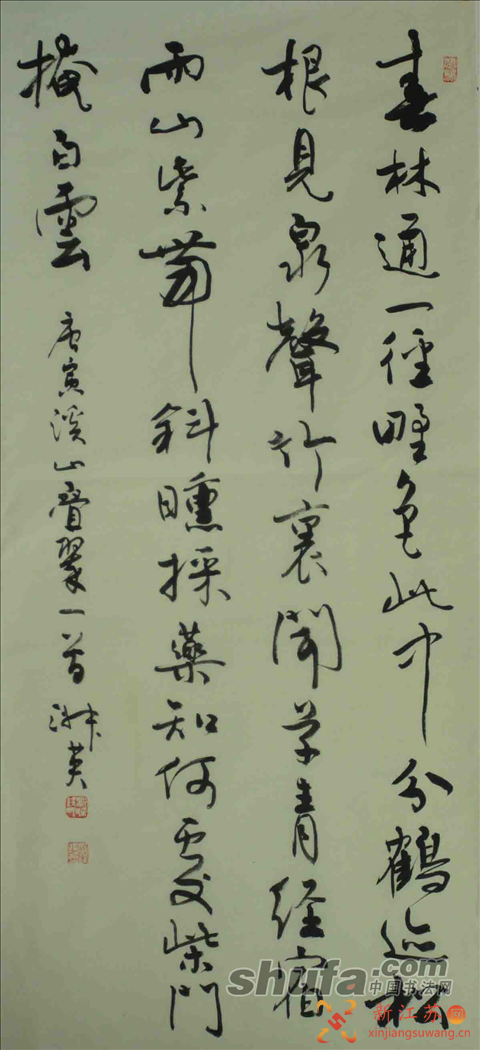 春林通一径野色此中分鶴迹松
根見泉聲竹裏聞草青经宿
雨山紫帶斜曛採藥知何處柴門
掩白雲
庚寅溪山疊翠一首 淋英
shufa.com
中国书法网
新江苏网
xinjiangsuwang.cn